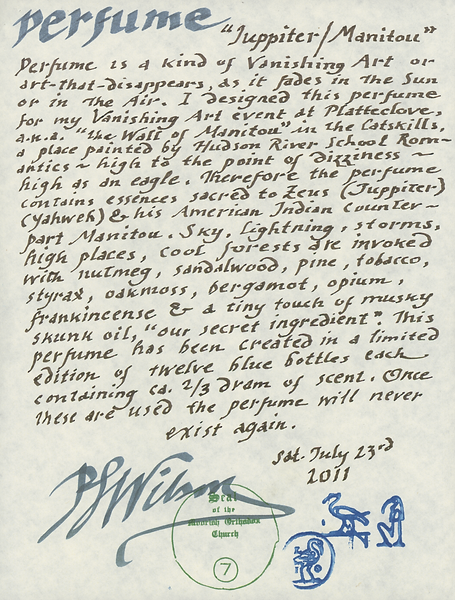 perfume
"Juppiter/Manitou"
Perfume is a kind of Vanishing Art or
art-that-disappears, as it fades in The Sun
or in The Air. I designed this perfume
for my Vanishing Art event at Platteclove,
a.k.a. "the Wall of Manitou" in the Catskills,
a place painted by Hudson River School Rom-
antics ~ high to the point of dizziness ~
high as an eagle. Therefore the perfume
contains essences sacred to Zeus (Juppiter)
(Yahweh) & his American Indian counter-
part Manitou. Sky, lightning, storms,
high places, cool forests are invoked
with nutmeg, sandalwood, pine, tobacco,
styrax, oakmoss, bergamot, opium,
frankincense & a tiny touch of musky
skunk oil, "our secret ingredient". This
perfume has been created in a limited
edition of twelve blue bottles each
containing ca. 2/3 dram of scent. Once
these are used the perfume will never
exist again.
Sat. July 23rd
2011
PLWilson
Seal
of the
Moorish Orthodox
Church
7